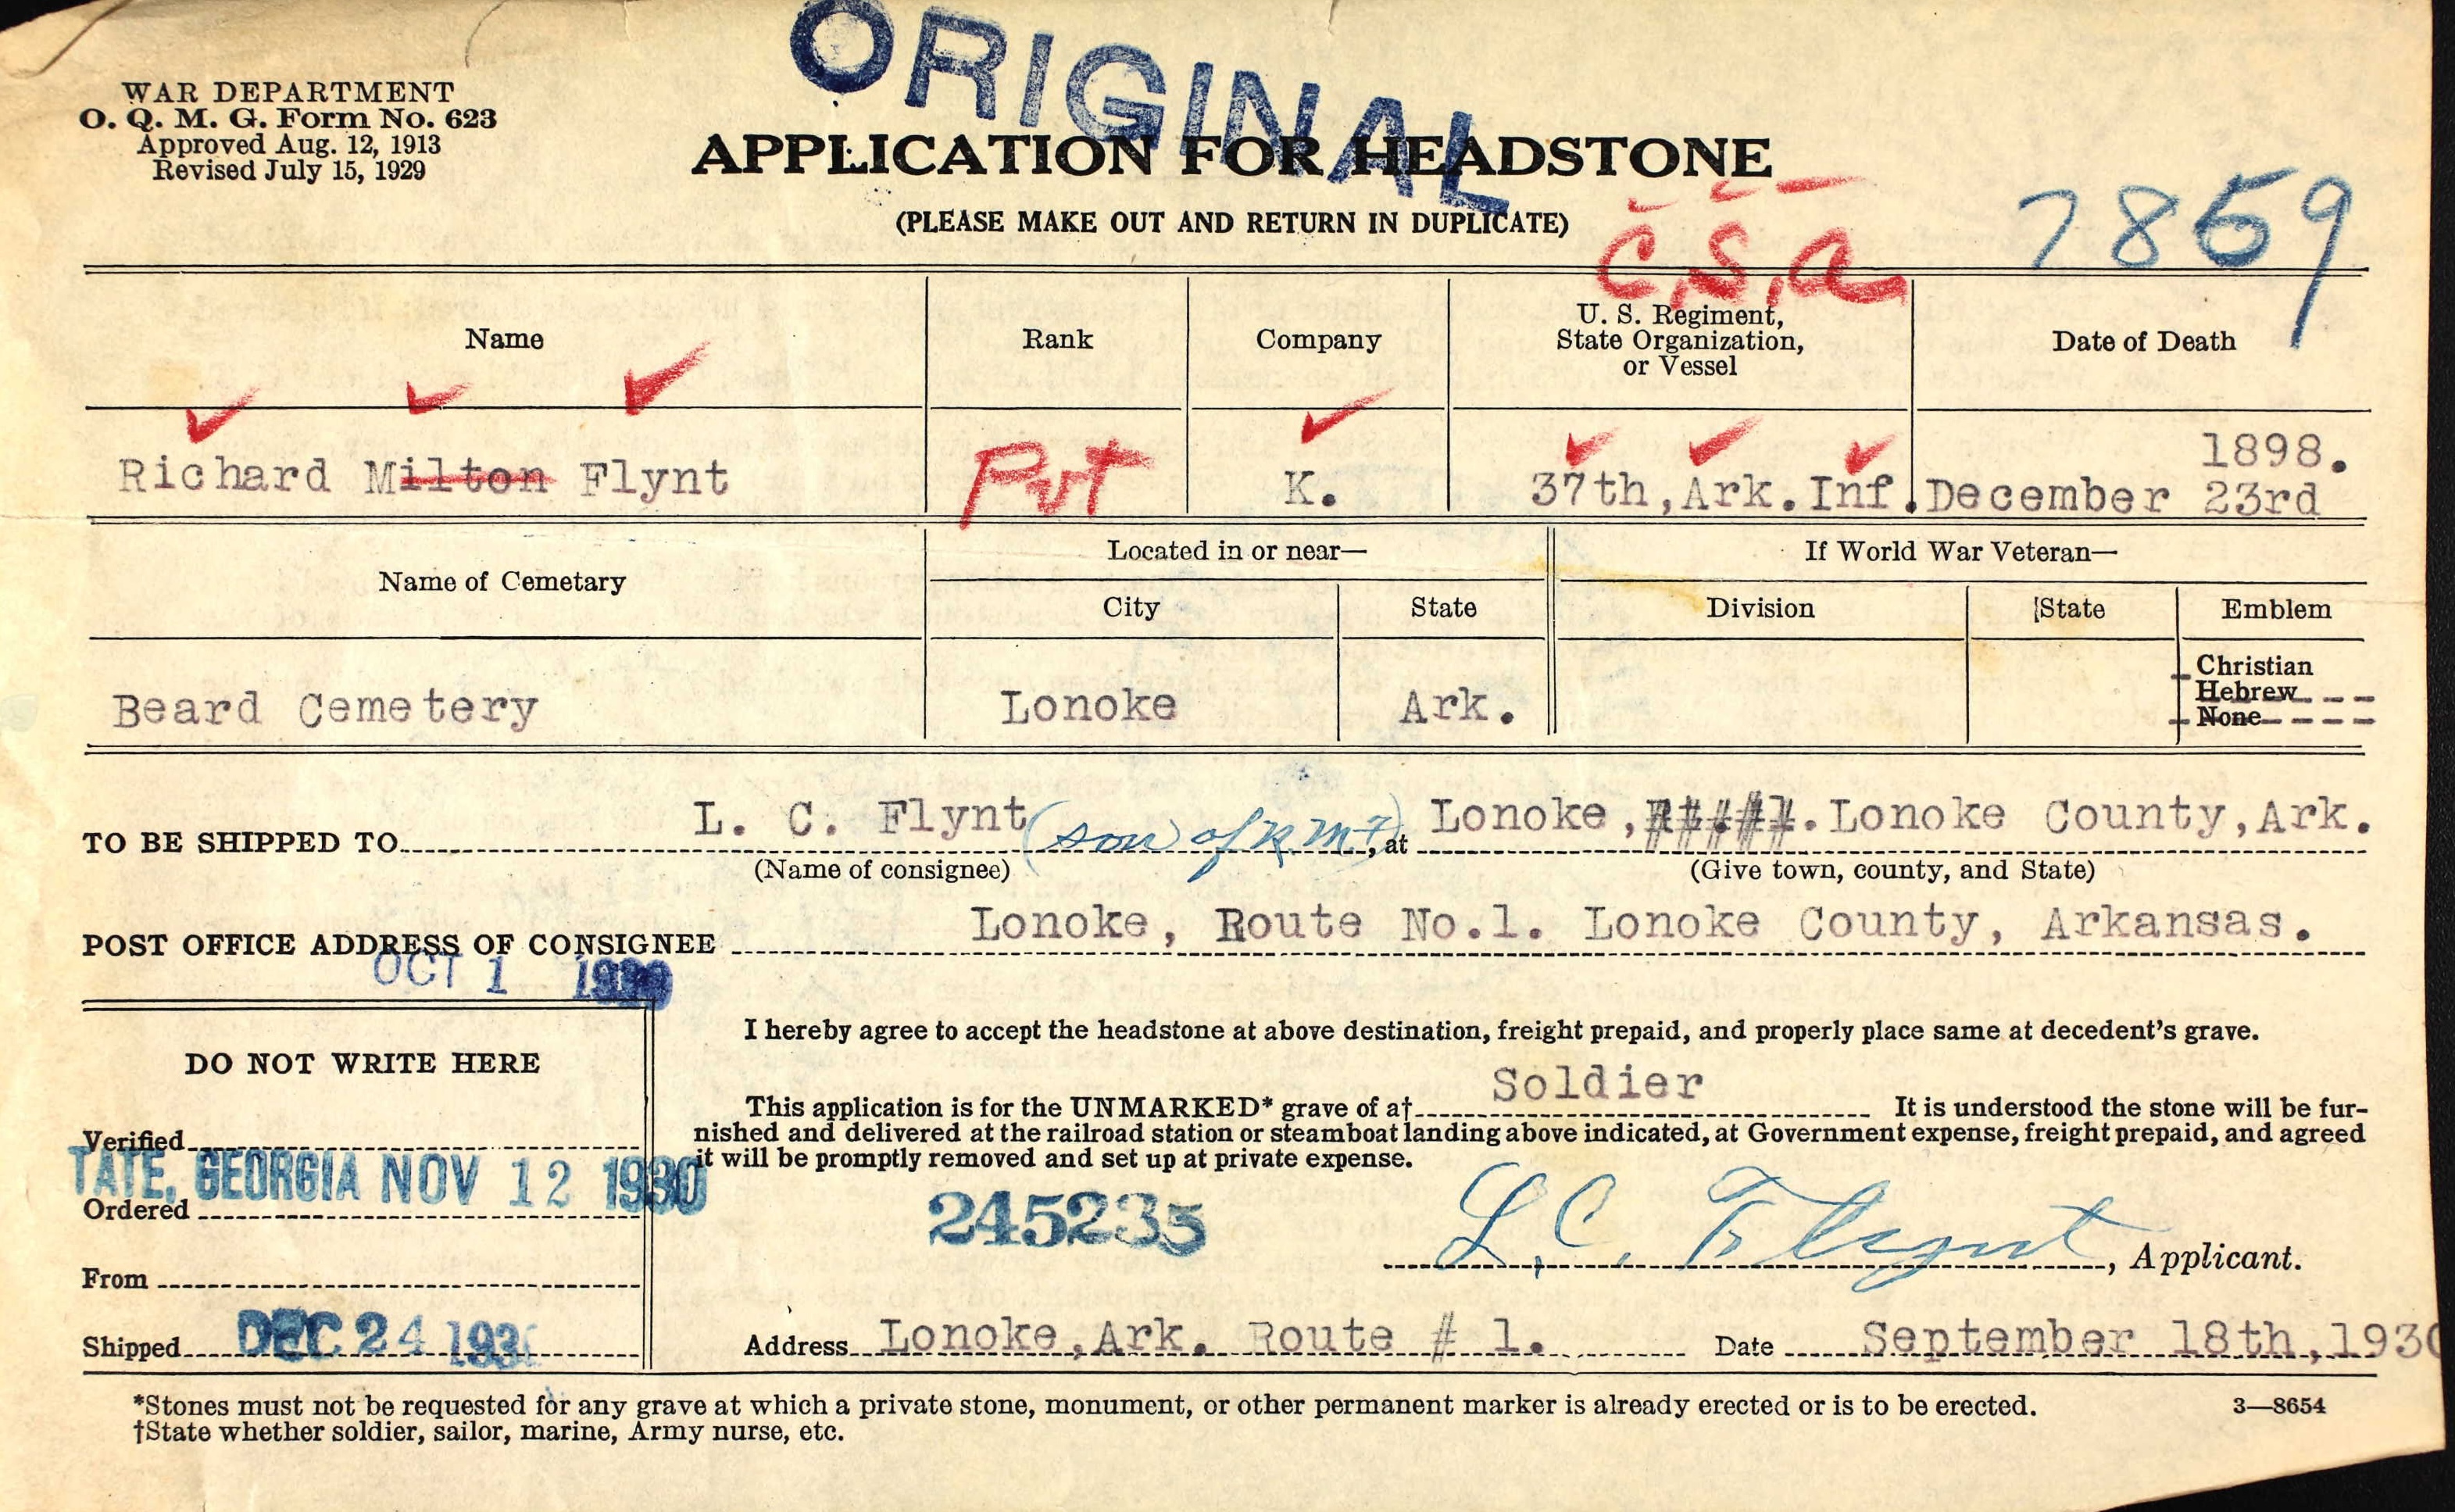 ORIGINAL
WAR DEPARTMENT
O. Q. M. G. Form No. 623
Approved Aug. 12, 1913
Revised July 15, 1929
APPLICATION FOR HEADSTONE
(PLEASE MAKE OUT AND RETURN IN DUPLICATE)
C.S.A.
7859
Name
Rank
Company
U. S. Regiment,
State Organization,
or Vessel
Date of Death
Richard Milton Flynt
Pvt
K.
37th, Ark. Inf.
1898.
December 23rd
Name of Cemetary
Located in or near—
If World War Veteran—
City
State
Division
State
Emblem
Beard Cemetery
Lonoke
Ark.
Christian
Hebrew
None
TO BE SHIPPED TO L. C. Flynt (son of R M F), at Lonoke, Lonoke County, Ark.
(Name of consignee)
(Give town, county, and State)
POST OFFICE ADDRESS OF CONSIGNEE Lonoke, Route No.1. Lonoke County, Arkansas.
OCT 1
DO NOT WRITE HERE
Verified
TATE, GEORGIA NOV 12 1930
Ordered
From
Shipped DEC 24 193
I hereby agree to accept the headstone at above destination, freight prepaid, and properly place same at decedent's grave.
Soldier
This application is for the UNMARKED* grave of a† It is understood the stone will be fur-
nished and delivered at the railroad station or steamboat landing above indicated, at Government expense, freight prepaid, and agreed
it will be promptly removed and set up at private expense.
245235
L. C. Flynt, Applicant.
Address Lonoke, Ark. Route # 1. Date September 18th, 1930
*Stones must not be requested for any grave at which a private stone, monument, or other permanent marker is already erected or is to be erected.
†State whether soldier, sailor, marine, Army nurse, etc.
3—8654